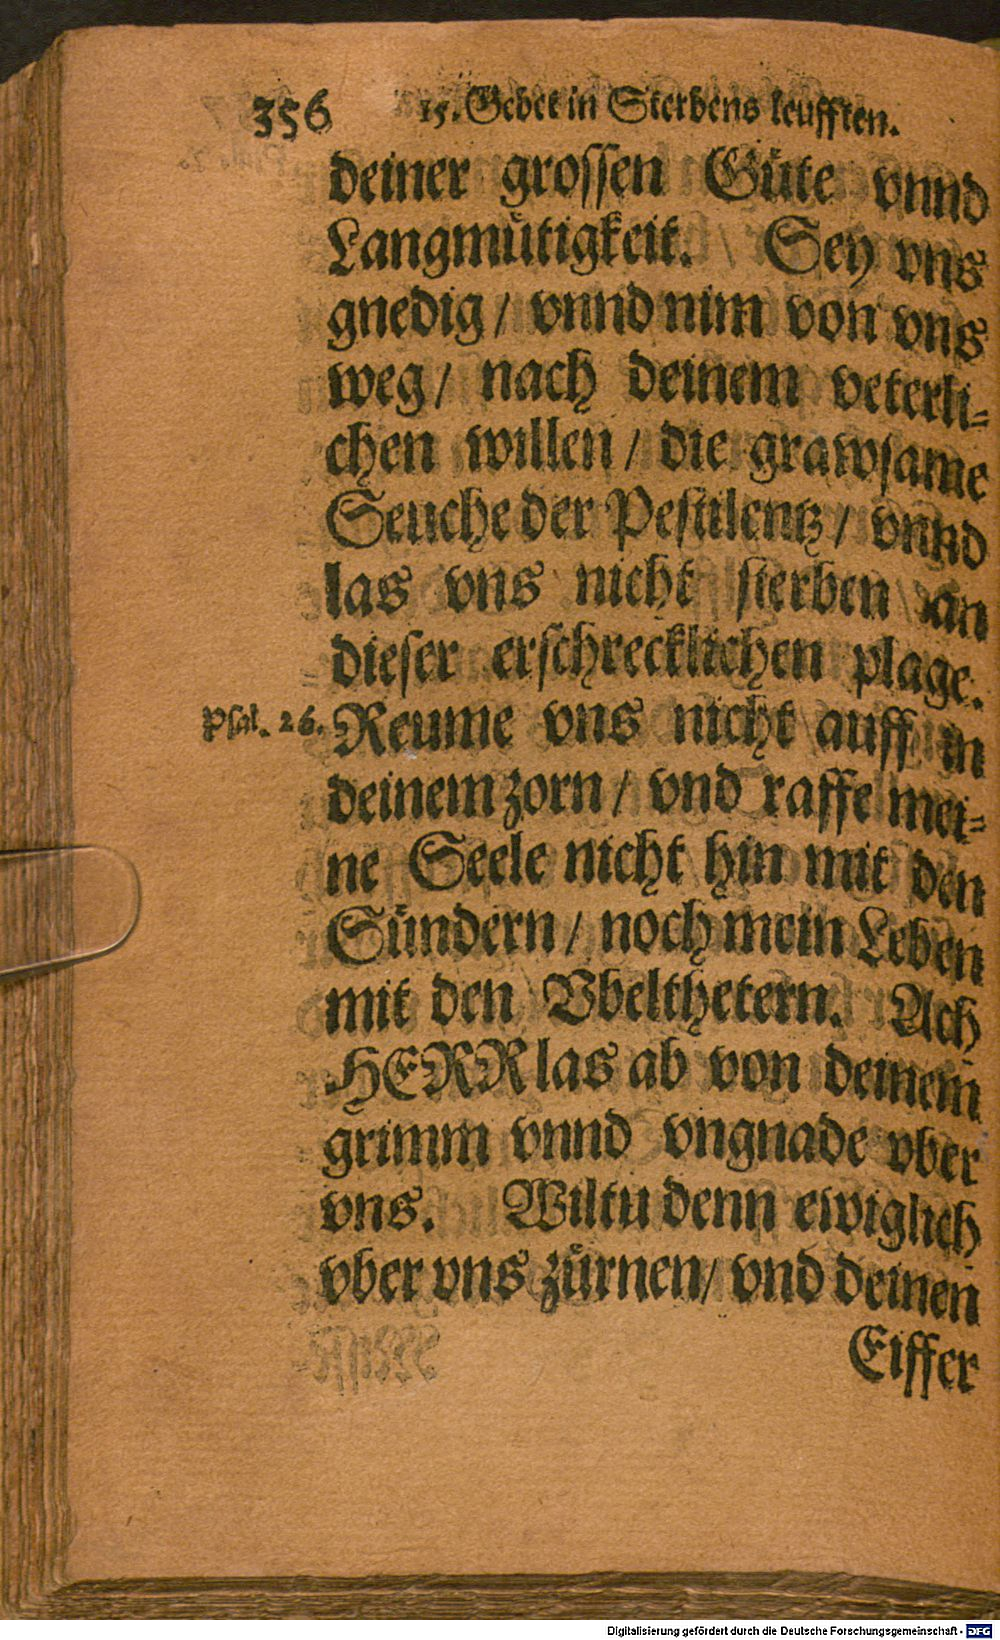 356 15. Gebet in Sterbens leufften.
deiner grossen Güte vnnd
Langmütigkeit. / Sey vns
gnedig / vnnd nim von vns
weg / nach deinem veterli=
chen willen / die grawsame
Seuche der Pestilentz / vnnd
las vns nicht sterben an
dieser erschrecklichen plage.
Psal. 26. Reume vns nicht auff in
deinem zorn / vnd raffe mei=
ne Seele nicht hin mit den
Sündern / noch mein Leben
mit den Vbelthetern. Ach
HERR las ab von deinem
grimm vnnd vngnade vber
vns. Wiltu denn ewiglich
vber vns zürnen / vnd deinen
Eiffer
Digitalisierung gefördert durch die Deutsche Forschungsgemeinschaft - DFG